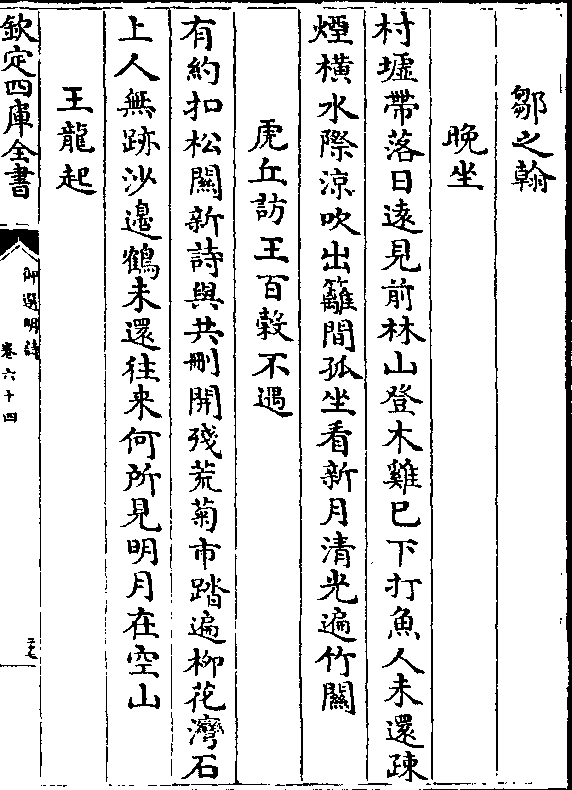 鄒之翰
晚坐
村墟帶落日遠見前林山登木雞已下打魚人未還疎
煙橫水際涼吹出籬間孤坐看新月清光遍竹關
虎丘訪王百穀不遇
有約扣松關新詩與共刪開殘荒菊市踏遍柳花灣石
上人無跡沙邊鶴未還往来何所見明月在空山
王龍起
欽定四庫全書
御選明詩
卷六十四